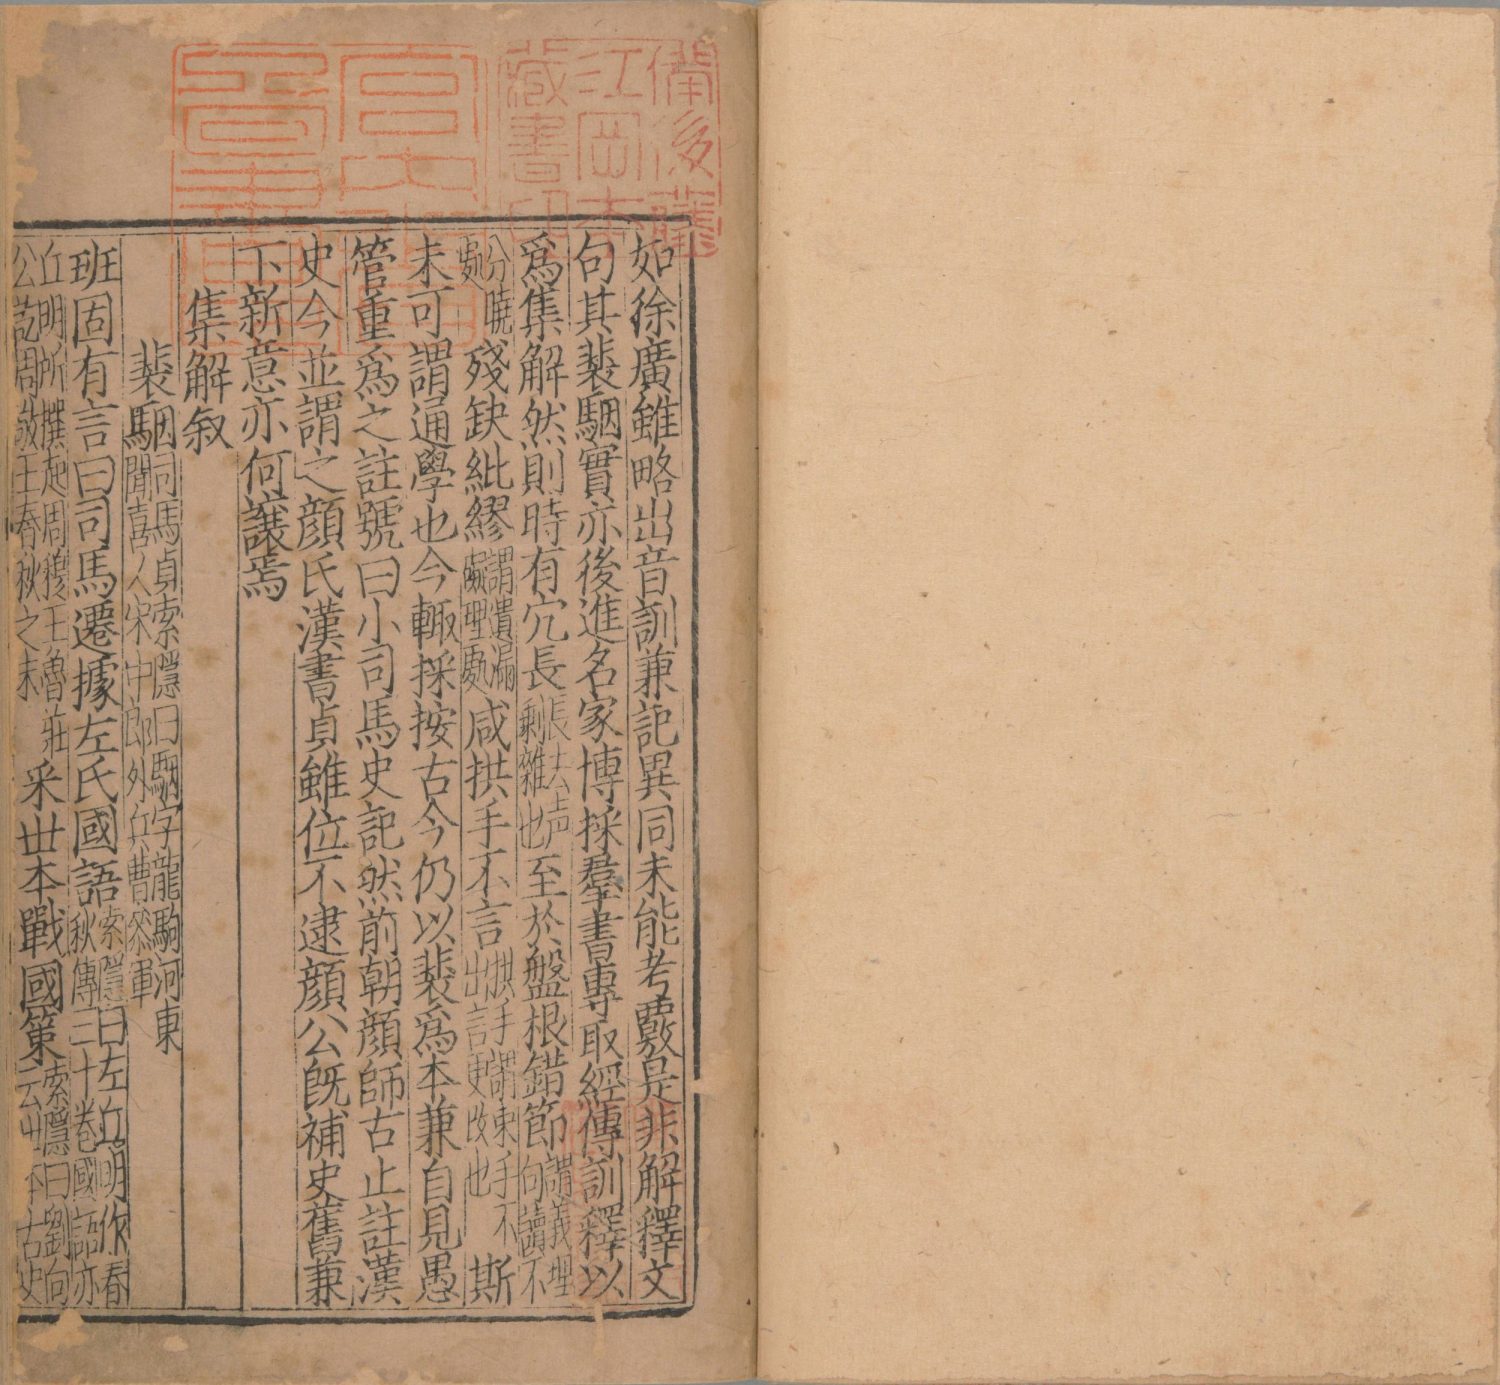 備後藤
江岡本
藏書印
如徐廣雖略出音訓兼記異同未能考覈是非解釋文
句其裴駰實亦後進名家博採羣書專取經傳訓釋以
爲集解然則時有冗長長去声剩雜也至於盤根錯節謂義理句讀不
分暁處殘缺紕繆謂遺漏處理處咸拱手不言拱手謂束手不出言更改也斯
未可謂通學也今輒採按古今仍以裴爲本兼自見愚
管重爲之註號曰小司馬史記然前朝顔師古止註漢
史今並謂之顔氏漢書貞雖位不逮顔公旣補史舊兼
下新意亦何讓焉
集解叙
裴駰司馬貞索隱曰駰字龍駒河東聞喜人宋中郎外兵曹叅軍
班固有言曰司馬遷據左氏國語索隱曰左丘明作春秋傳三十卷國語亦
丘明所撰起周穆王魯莊公訖周敬王春秋之末采丗本戰國策索隱曰劉向云丗本古史